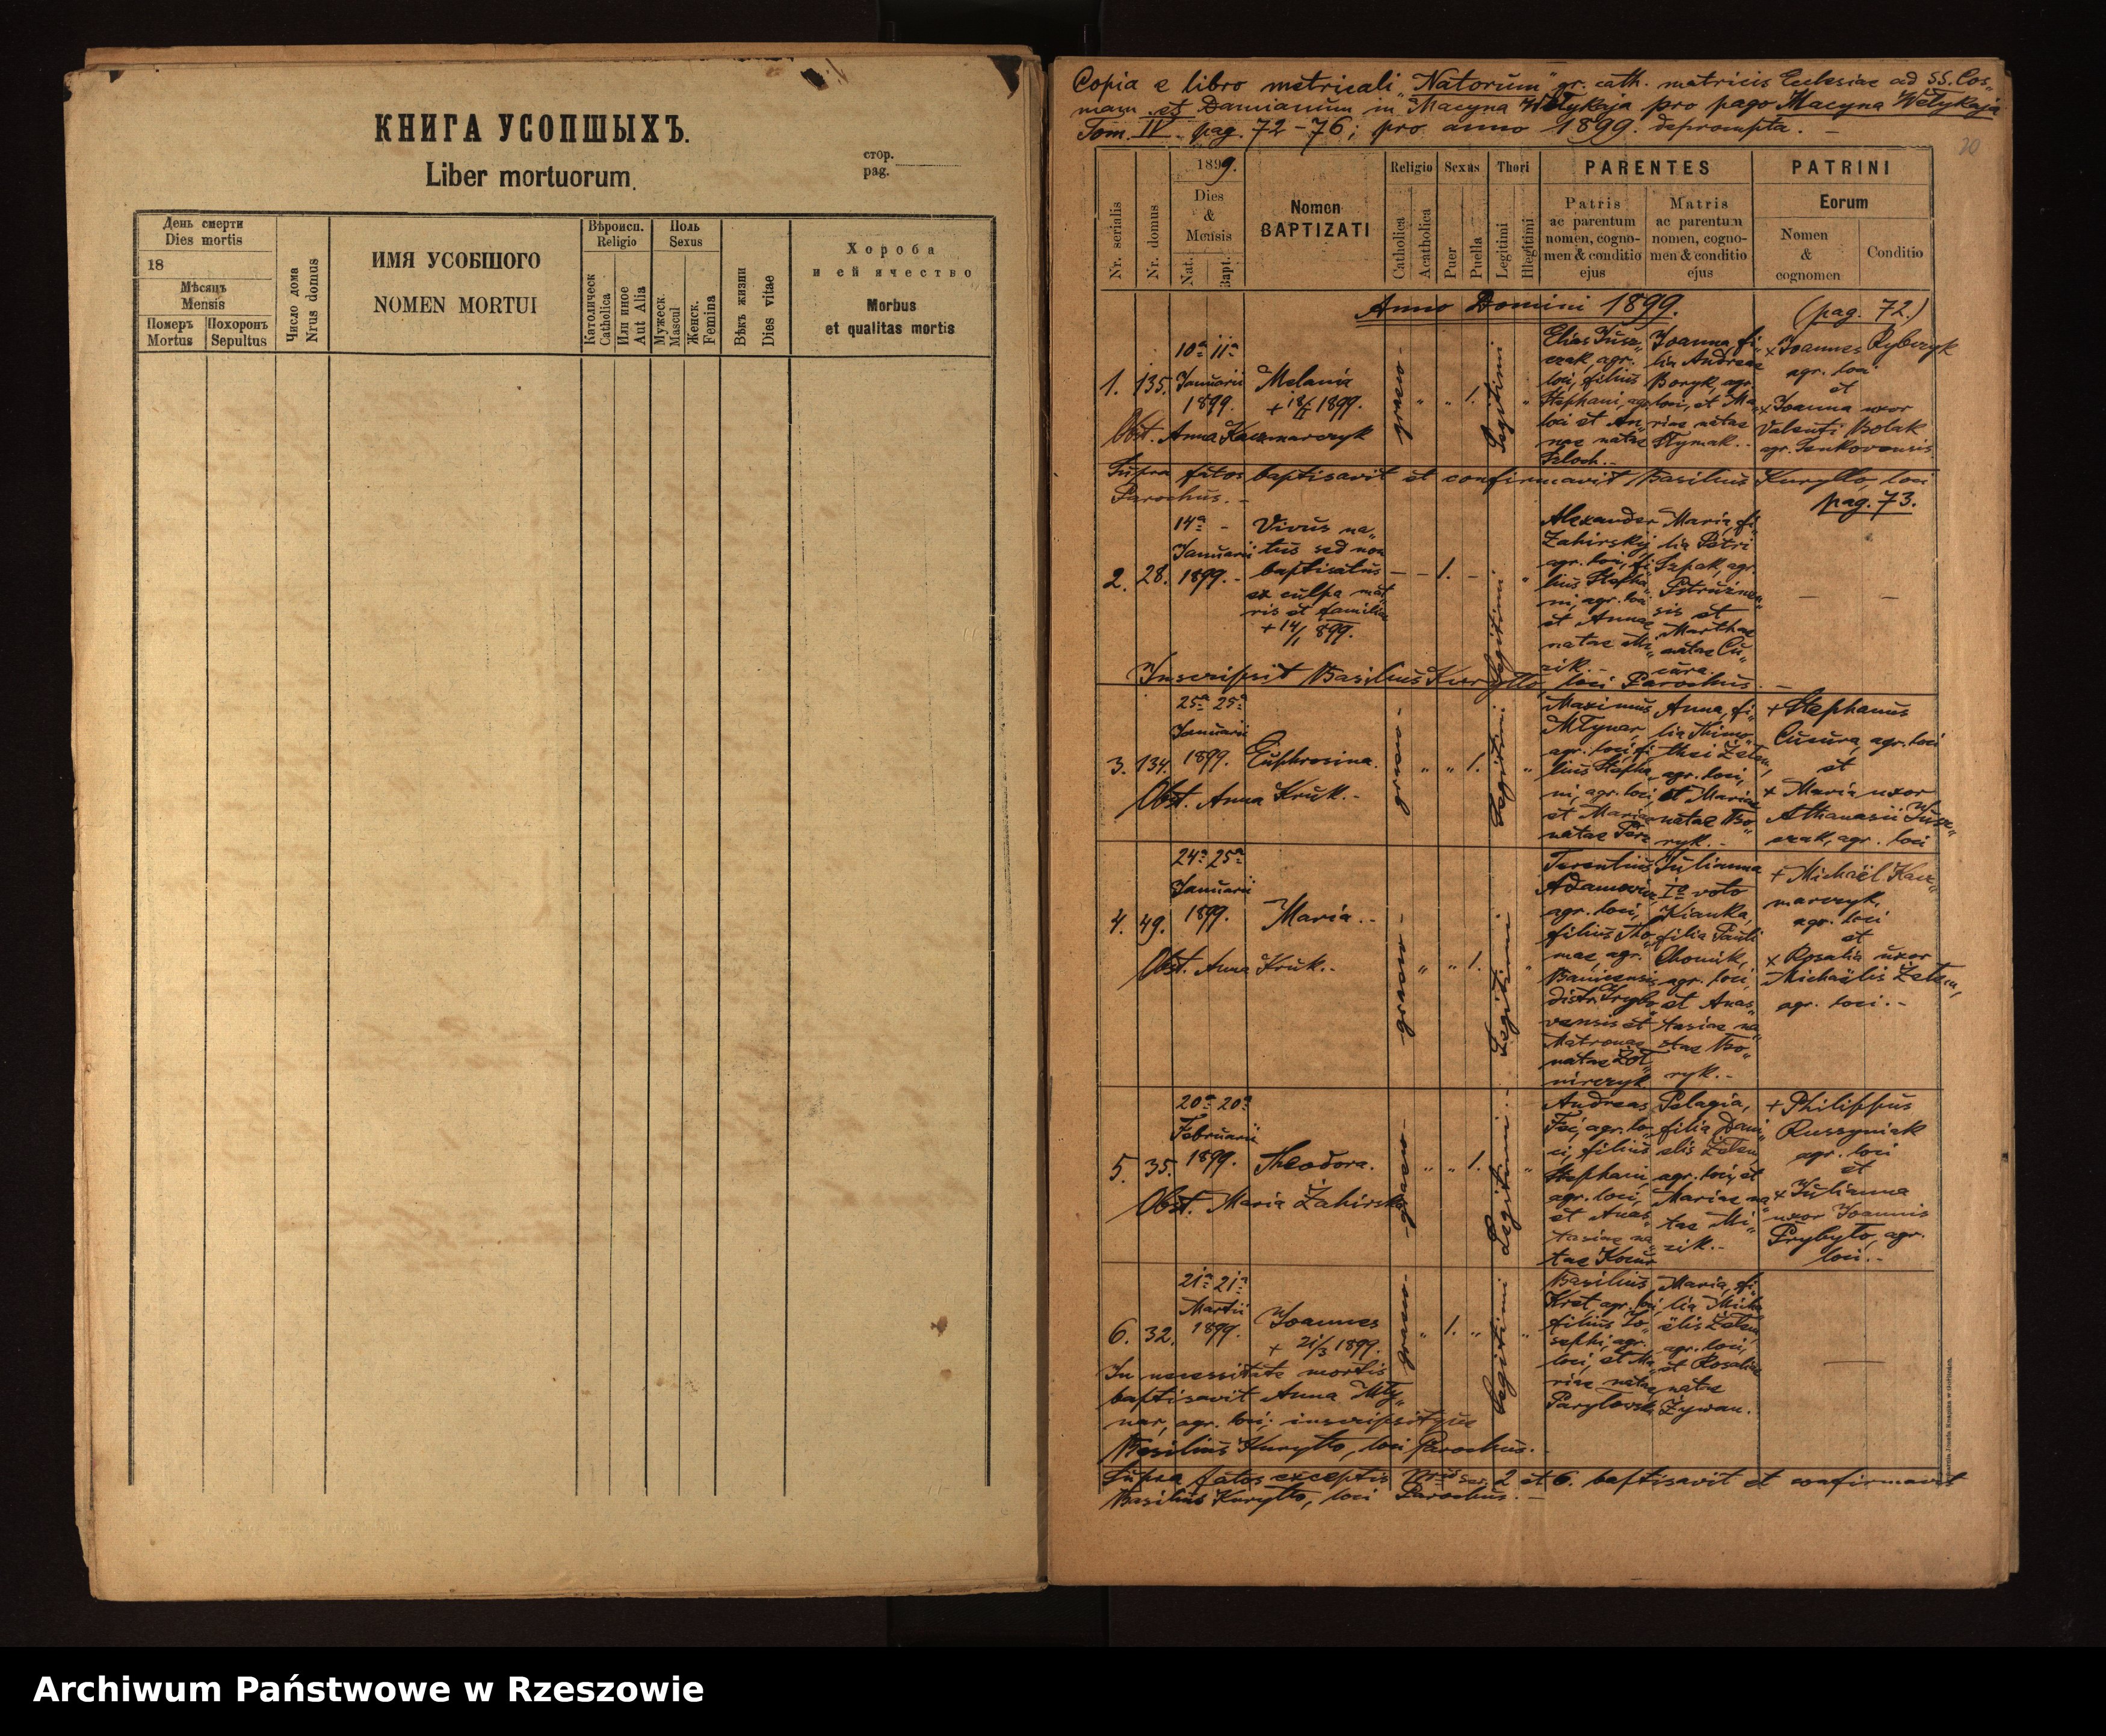 КНИГА УСОПШЫХЪ.
Liber mortuorum.
стор.
pag.
День смерти
Dies mortis
18
Мѣсяцъ
Mensis
Померъ
Mortus
Похоронъ
Sepultus
Число дома
Nrus domus
ИМЯ УСОБШОГО
NOMEN MORTUI
Вѣроисп.
Religio
Католическ
Catholica
Или иное
Aut Alia
Поль
Sexus
Мужеск.
Mascul
Женск.
Femina
Вѣкъ жизни
Dies vitae
Хороба
и ей ячество
Morbus
et qualitas mortis
Copia e libro metricali "Natorum" gr. cath. matricis Ecclesiae ad SS. Cos„
mam et Damianum in Macyna Wełykaja pro pago Macyna Wełykaja
Tom. IV. pag. 72-76; pro anno 1899. deprompta. –
20
Nr. serialis
Nr. domus
1899.
Dies
&
Mensis
Nat.
Bapt.
Nomen
BAPTIZATI
Religio
Catholica
Acatholica
Sexus
Puer
Puella
Thori
Legitimi
Illegitimi
PARENTES
Patris
ac parentum
nomen, cogno-
men & conditio
ejus
Matris
ac parentum
nomen, cogno-
men & conditio
ejus
PATRINI
Eorum
Nomen
&
cognomen
Conditio
Anno Domini 1899.
(pag. 72.)
1. 135.
10a 11a
Januarii
1899.
Melania
+ 18/1 1899.
Obst. Anna Kaczmarczyk
graeco-
„ „ 1.
Legitimi
„
Elias Jusz„
czak, agr.
loci, filius
Stephani, agr.
loci et An„
nae natae
Szloch.-
Joanna, fi„
lia Andreae
Boryk, agr.
loci, et Ma„
riae natae
Stymak.-
+ Joannes Rybczyk
agr. loci
et
+ Joanna uxor
Valenti Bolak
agr. Jankovensis
Supra fatos baptisavit et confirmavit Basilius Kuryłło, loci
Parochus.-
pag. 73.
2. 28.
14a -
Januarii
1899.-
Vivus na„
tus sed non
baptisatus
ex culpa mat
ris et familiae
+ 14/1 899.
– – 1. –
Legitimi
„
Alexander
Zahirskij
agr. loci, fi
lius Stepha„
ni, agr. loci
et Annae
natae Mi„
zik.-
Maria, fi„
lia Petri
Szpak, agr.
Petruznen„
sis et
Marthae
natae Cu„
cura.
– –
Inscripsit Basilius Kuryłło, loci Parochus. –
3. 134.
25a 25a
Januarii
1899.
Euphrosina.
Obst. Anna Kruk.-
graeco-
„ „ 1.
Legitimi.
„
Maximus
Młynar,
agr. loci, fi
lius Stepha„
ni, agr. loci,
et Mariae
natae
Anna, fi„
lia Thimo„
thei Żełem,
agr. loci,
et Mariae
natae Bo„
ryk.-
+ Stephanus
Cucura, agr. loci
et
+ Maria uxor
Athanasii Jusz„
czak, agr. loci
4. 49.
24a 25a
Januarii
1899.
Maria.-
Obst. Anna Kruk.-
graeco-
„ „ 1.
Legitimi
„
Terentius
Adamowicz
agr. loci,
filius Tho„
mae, agr.
Banicensis
distr. Grybo„
vensis et
Matronae
natae Żoł„
nirczyk
Julianna
Io voto
filia Pauli
Chomik,
agr. loci,
et Anas„
tasiae na
tae Bo„
ryk.-
+ Michaël Kacz„
marczyk,
agr. loci
et
+ Rosalia uxor
Michaëlis Żełem,
agr. loci.-
5. 35.
20a 20a
Februarii
1899.
Theodora.
Obst. Maria Zahirska
graeco-
„ „ 1.
Legitimi.-
„
Andreas
Feć, agr. lo„
ci, filius
Stephani
agr. loci,
et Anas„
tasiae na„
tae Kocur
Pelagia,
filia Dani„
elis Żełem,
agr. loci, et
Mariae na„
tae Mi„
zik.-
+ Philippus
Russyniak
agr. loci
et
+ Julianna
uxor Joannis
Prybyło, agr.
loci.-
6. 32.
21a 21a
Martii
1899.
Joannes
+ 21/3 1899.
graeco-
„ 1. „
Legitimi
„
Basilius
Kret, agr. loci,
filius Jo„
sephi, agr.
loci, et Ma„
riae natae
Paryłowsk
Maria, fi„
lia Micha
ëlis Żełem,
agr. loci,
et Rosaliae
natae
Żywan.
–
In necessitate mortis
baptisavit Anna Mły„
nar, agr. loci; inscripsitque
Basilius Kuryłło, loci Parochus.-
Supra fatos exceptis Nris ser. 2 et 6. baptisavit et confirmavit
Basilius Kuryłło, loci Parochus.-